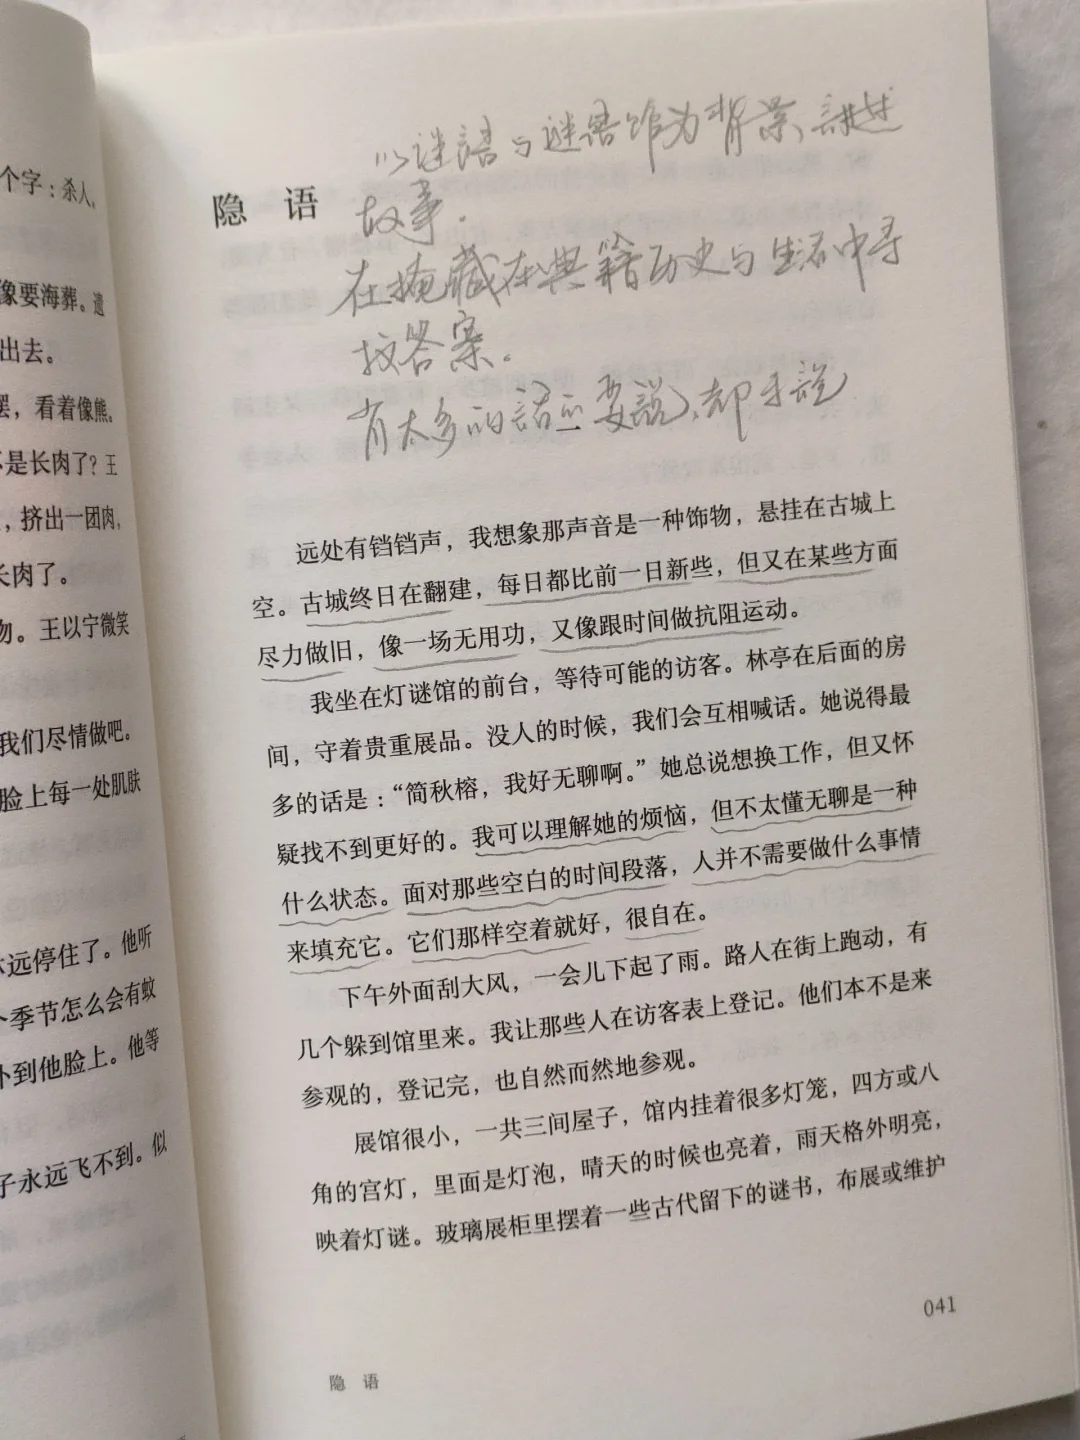 个字：杀人。
像要海葬。遗
出去。
摆，看着像熊。
不是长肉了？王
，挤出一团肉，
长肉了。
物。王以宁微笑
我们尽情做吧。
脸上每一处肌肤
远停住了。他听
个季节怎么会有蚊
卟到他脸上。他等
子永远飞不到。似
以谜語与谜語馆为背景，講述
故事.
在掩藏在典籍历史与生活中寻
找答案.
有太多的話要説、却予説
隐 语
远处有铛铛声，我想象那声音是一种饰物，悬挂在古城上
空。古城终日在翻建，每日都比前一日新些，但又在某些方面
尽力做旧，像一场无用功，又像跟时间做抗阻运动。
我坐在灯谜馆的前台，等待可能的访客。林亭在后面的房
间，守着贵重展品。没人的时候，我们会互相喊话。她说得最
多的话是：“简秋榕，我好无聊啊。”她总说想换工作，但又怀
疑找不到更好的。我可以理解她的烦恼，但不太懂无聊是一种
什么状态。面对那些空白的时间段落，人并不需要做什么事情
来填充它。它们那样空着就好，很自在。
下午外面刮大风，一会儿下起了雨。路人在街上跑动，有
几个躲到馆里来。我让那些人在访客表上登记。他们本不是来
参观的，登记完，也自然而然地参观。
展馆很小，一共三间屋子，馆内挂着很多灯笼，四方或八
角的宫灯，里面是灯泡，晴天的时候也亮着，雨天格外明亮，
映着灯谜。玻璃展柜里摆着一些古代留下的谜书，布展或维护
041
隐 语